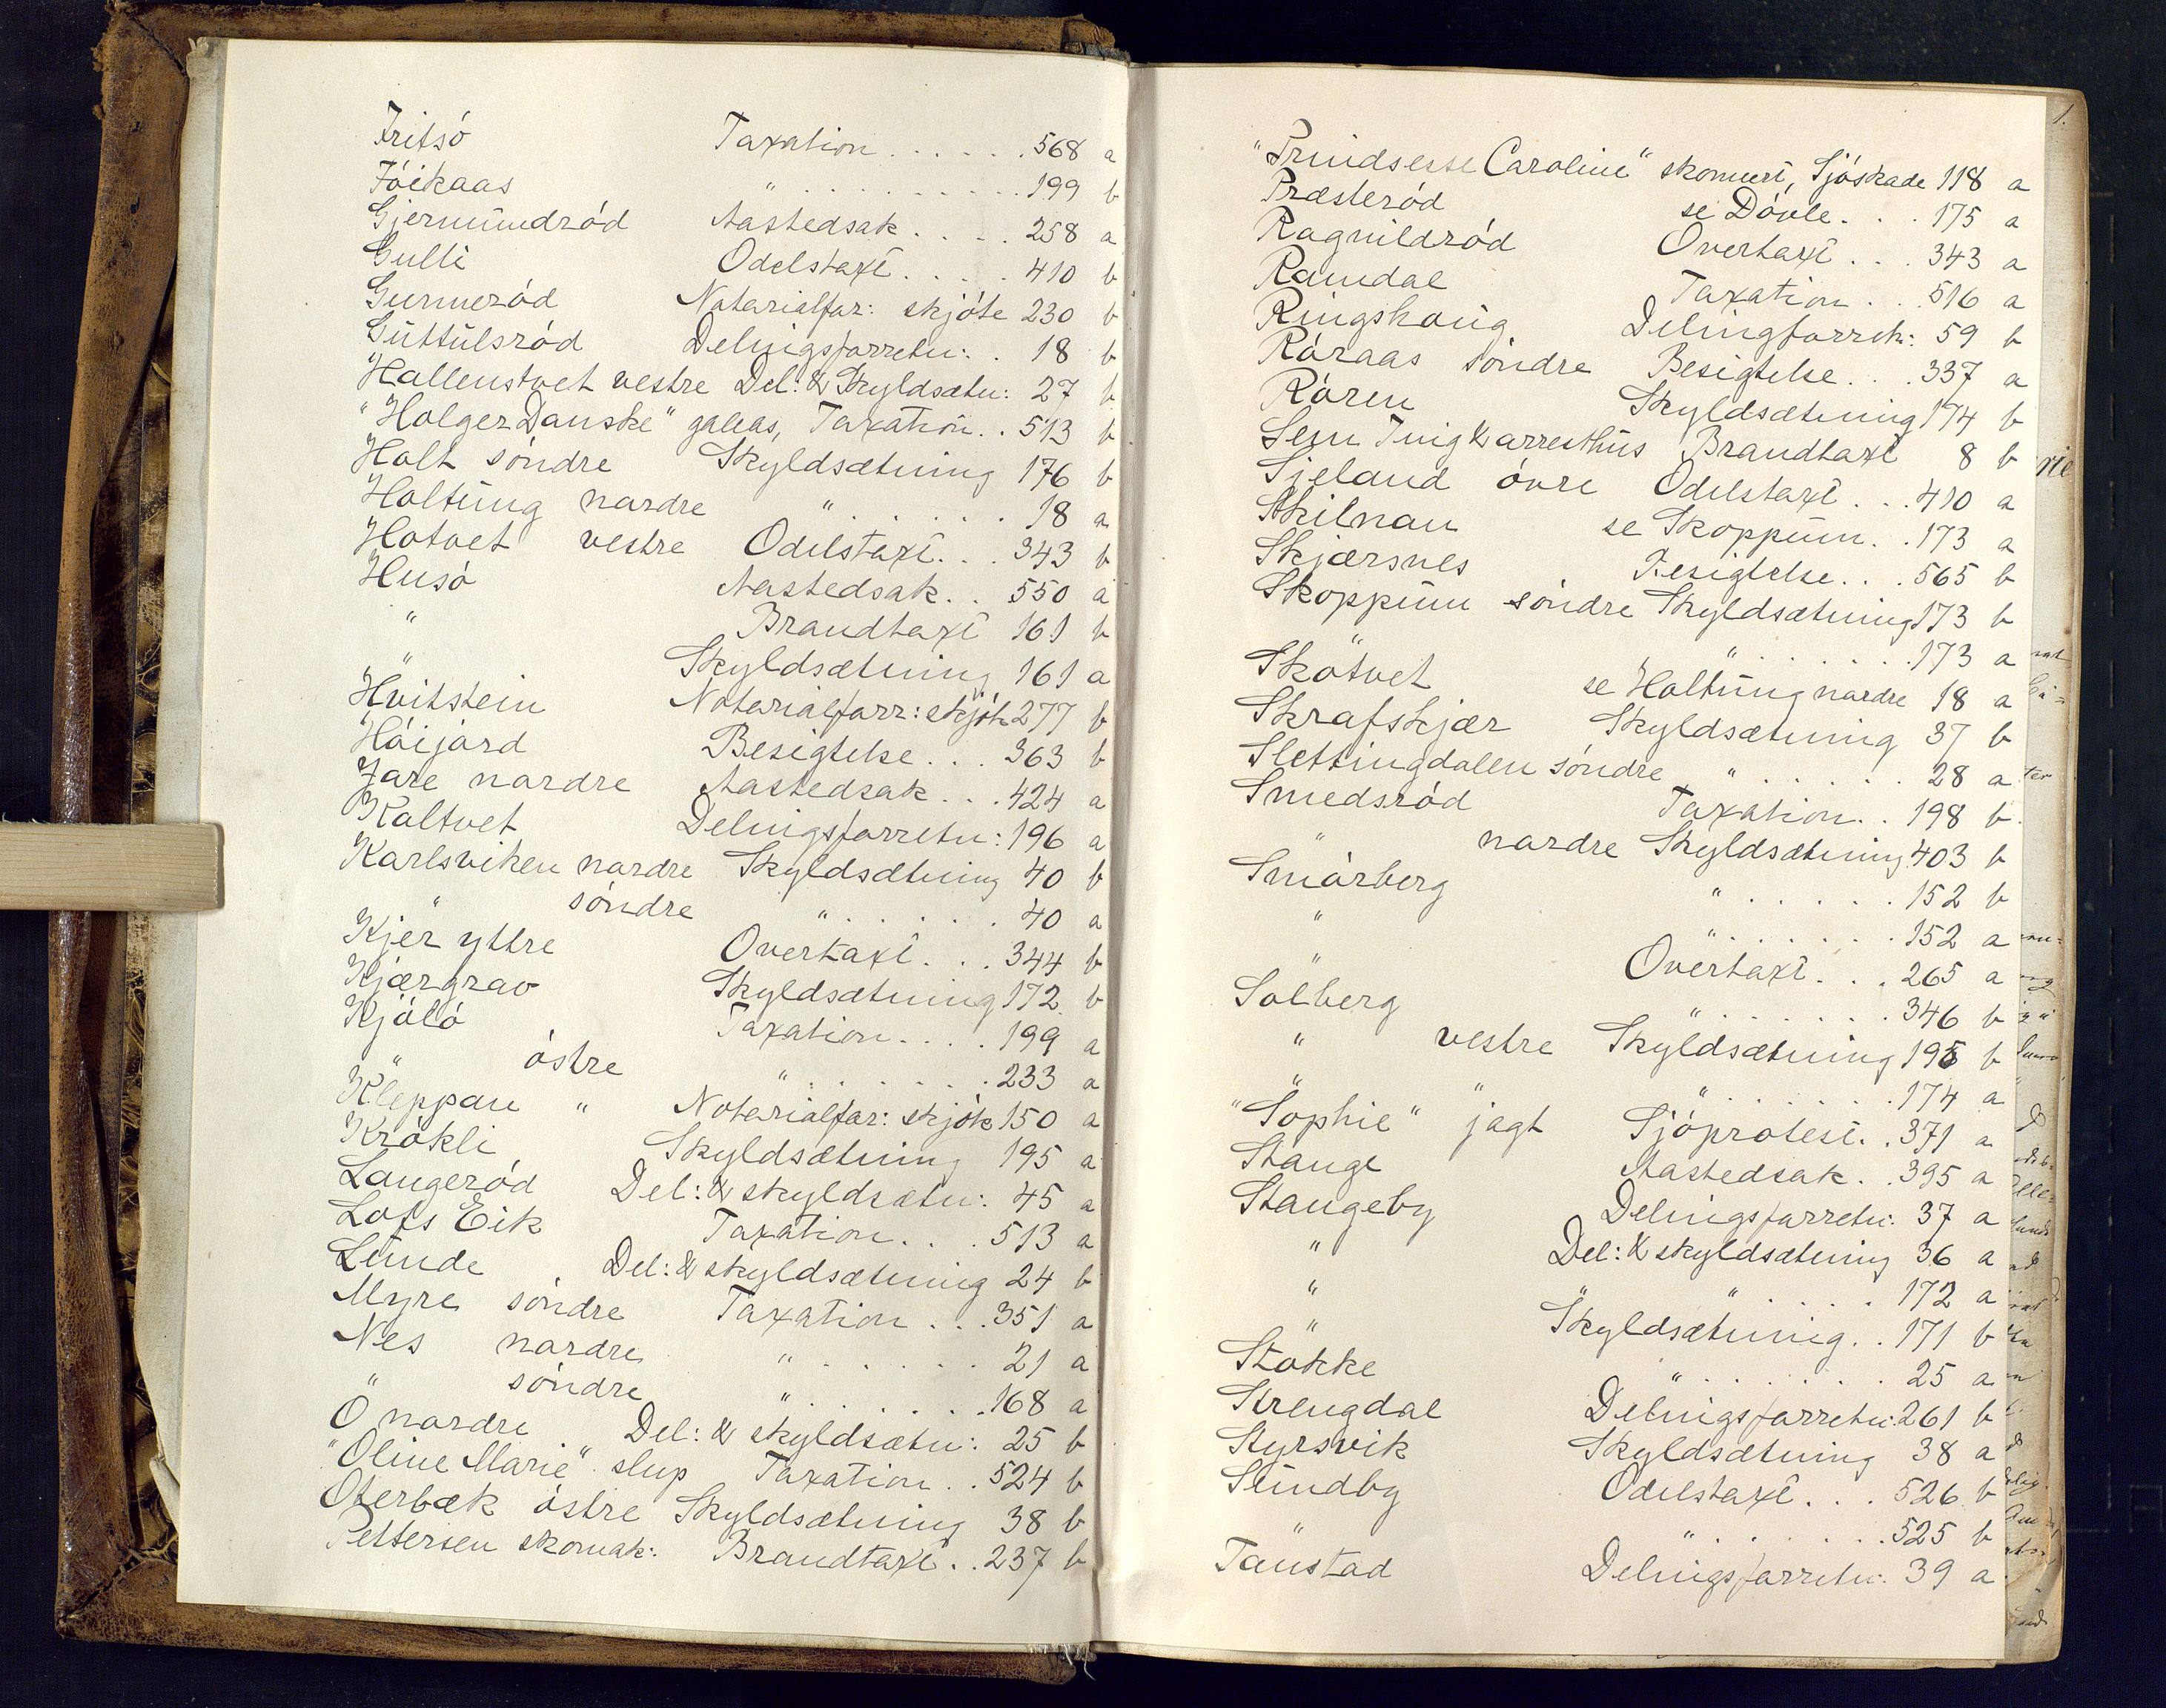 Fritsó Taxation . . . . . . 568 a
Fóikaas " . . . . . . . . . . 199 b
Gjermundród Aastedsak . . . . 258 a
Gulli Odelstaxt . . . . 410 b
Gunneród Notarialfor: skjóte 230 b
Guttulsród Delingsforretn: . 18 b
Hallenstvet vestre Del: & Skyldsætn: 27 b
"Holger Danske" galeas, Taxation . . 513 b
Holt sóndre Skyldsætning 176 b
Holtung nordre " . . . . . . . 18 a
Hotvet vestre Odelstaxt . . . 343 b
Husó Aastedsak . . 550 a
" Brandtaxt 161 b
" Skyldsætning 161 a
Hvitstein Notarialforr: skjót 277 b
Hóijord Besigtelse . . . 363 b
Jare nordre Aastedsak . . . 424 a
Kaltvet Delingsforretn: 196 a
Karlsviken nordre Skyldsætning 40 b
" sóndre " . . . . . . 40 a
Kjer yttre Overtaxt . . . 344 b
Kjærgrav Skyldsætning 172 b
Kjóló Taxation . . . . 199 a
" óstre " . . . . . . . 233 a
Kleppan " Notarialfor: skjót 150 a
Krókli Skyldsætning 195 a
Langeród Del: & skyldsætn: 45 a
Lofs Eik Taxation . . . 513 a
Lunde Del: & skyldsætning 24 b
Myre sóndre Taxation . . . 351 a
Nes nordre " . . . . . . 21 a
" sóndre " . . . . . . . 168 a
Ó nordre Del: & skyldsætn: 25 b
"Oline Marie" slup Taxation . . 524 b
Oterbæk óstre Skyldsætning 38 b
Pettersen skomak: Brandtaxt . . 237 b
"Prindsesse Caroline" skonnert, Sjóskade 118 a
Præsteród se Dóvle . . . 175 a
Ragnildród Overtaxt . . . 343 a
Ramdal Taxation . . 516 a
Ringshaug Delingforretn: 59 b
Róraas sóndre Besigtelse . . . 337 a
Róren Skyldsætning 174 b
Sem Ting & arresthus Brandtaxt 8 b
Sjeland óvre Odelstaxt . . . 410 a
Skilnan se Skoppum . . 173 a
Skjærsnes Besigtelse . . . 565 b
Skoppum sóndre Skyldsætning 173 b
" " . . . . . . . 173 a
Skotvet se Holtung nordre 18 a
Skrafskjær Skyldsætning 37 b
Slettingdalen sóndre " . . . . . . 28 a
Smedsród Taxation . . 198 b
" nordre Skyldsætning 403 b
Smórberg " . . . . . . 152 b
" " . . . . . . . 152 a
" Overtaxt . . . 265 a
Solberg " . . . . . . . 346 b
" vestre Skyldsætning 195 b
" " . . . . . . . 174 a
"Sophie" jagt Sjóprotest . . 371 a
Stange Aastedsak . . 395 a
Stangeby Delingsforretn: 37 a
" Del: & skyldsætning 36 a
" " " . . . . . 172 a
" Skyldsætning . . 171 b
Stokke " . . . . . . . 25 a
Strengdal Delingsforretn: 261 b
Styrsvik Skyldsætning 38 a
Sundby Odelstaxt . . . 526 b
" " . . . . . . . 525 b
Tanstad Delingsforretn: 39 a